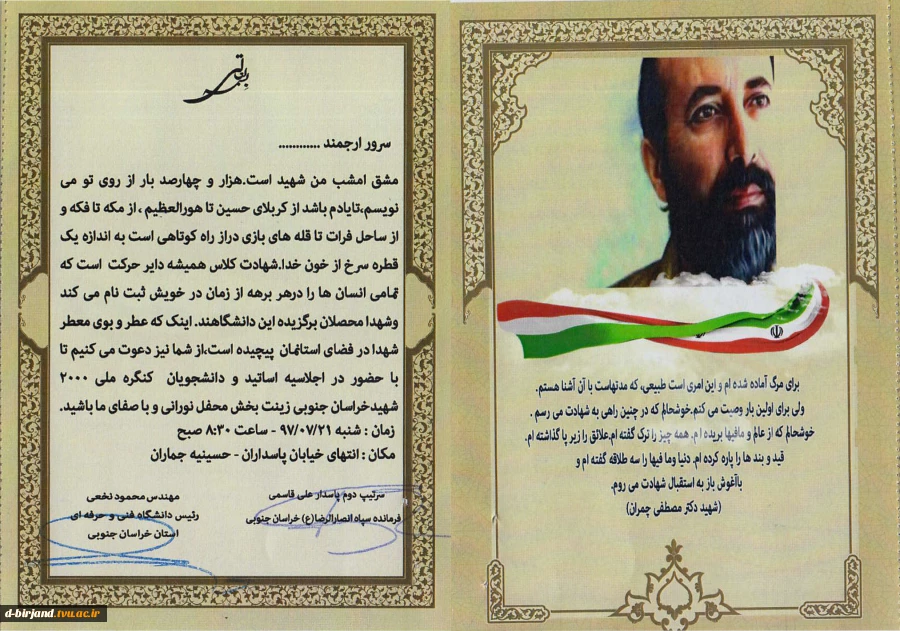 بسمه تعالی
سرور ارجمند ............
مشق امشب من شهید است.هزار و چهارصد بار از روی تو می
نویسم،تایادم باشد از کربلای حسین تا هورالعظیم ، از مکه تا فکه و
از ساحل فرات تا قله های بازی دراز راه کوتاهی است به اندازه یک
قطره سرخ از خون خدا.شهادت کلاس همیشه دایر حرکت است که
تمامی انسان ها را درهر برهه از زمان در خویش ثبت نام می کند
وشهدا محصلان برگزیده این دانشگاهند. اینک که عطر و بوی معطر
شهدا در فضای استانمان پیچیده است،از شما نیز دعوت می کنیم تا
با حضور در اجلاسیه اساتید و دانشجویان کنگره ملی ۲۰۰۰
شهیدخراسان جنوبی زینت بخش محفل نورانی و با صفای ما باشید.
زمان : شنبه ۹۷/۰۷/۲۱ - ساعت ۸:۳۰ صبح
مکان : انتهای خیابان پاسداران - حسینیه جماران
سرتیپ دوم پاسدار علی قاسمی
فرمانده سپاه انصارالرضا(ع) خراسان جنوبی
مهندس محمود نخعی
رئیس دانشگاه فنی و حرفه ای
استان خراسان جنوبی
برای مرگ آماده شده ام و این امری است طبیعی، که مدتهاست با آن آشنا هستم.
ولی برای اولین بار وصیت می کنم.خوشحالم که در چنین راهی به شهادت می رسم .
خوشحالم که از عالم و مافیها بریده ام. همه چیز را ترک گفته ام.علائق را زیر پا گذاشته ام.
قید و بند ها را پاره کرده ام. دنیا وما فیها را سه طلاقه گفته ام و
باآغوش باز به استقبال شهادت می روم.
(شهید دکتر مصطفی چمران)
d-birjand.tvu.ac.ir